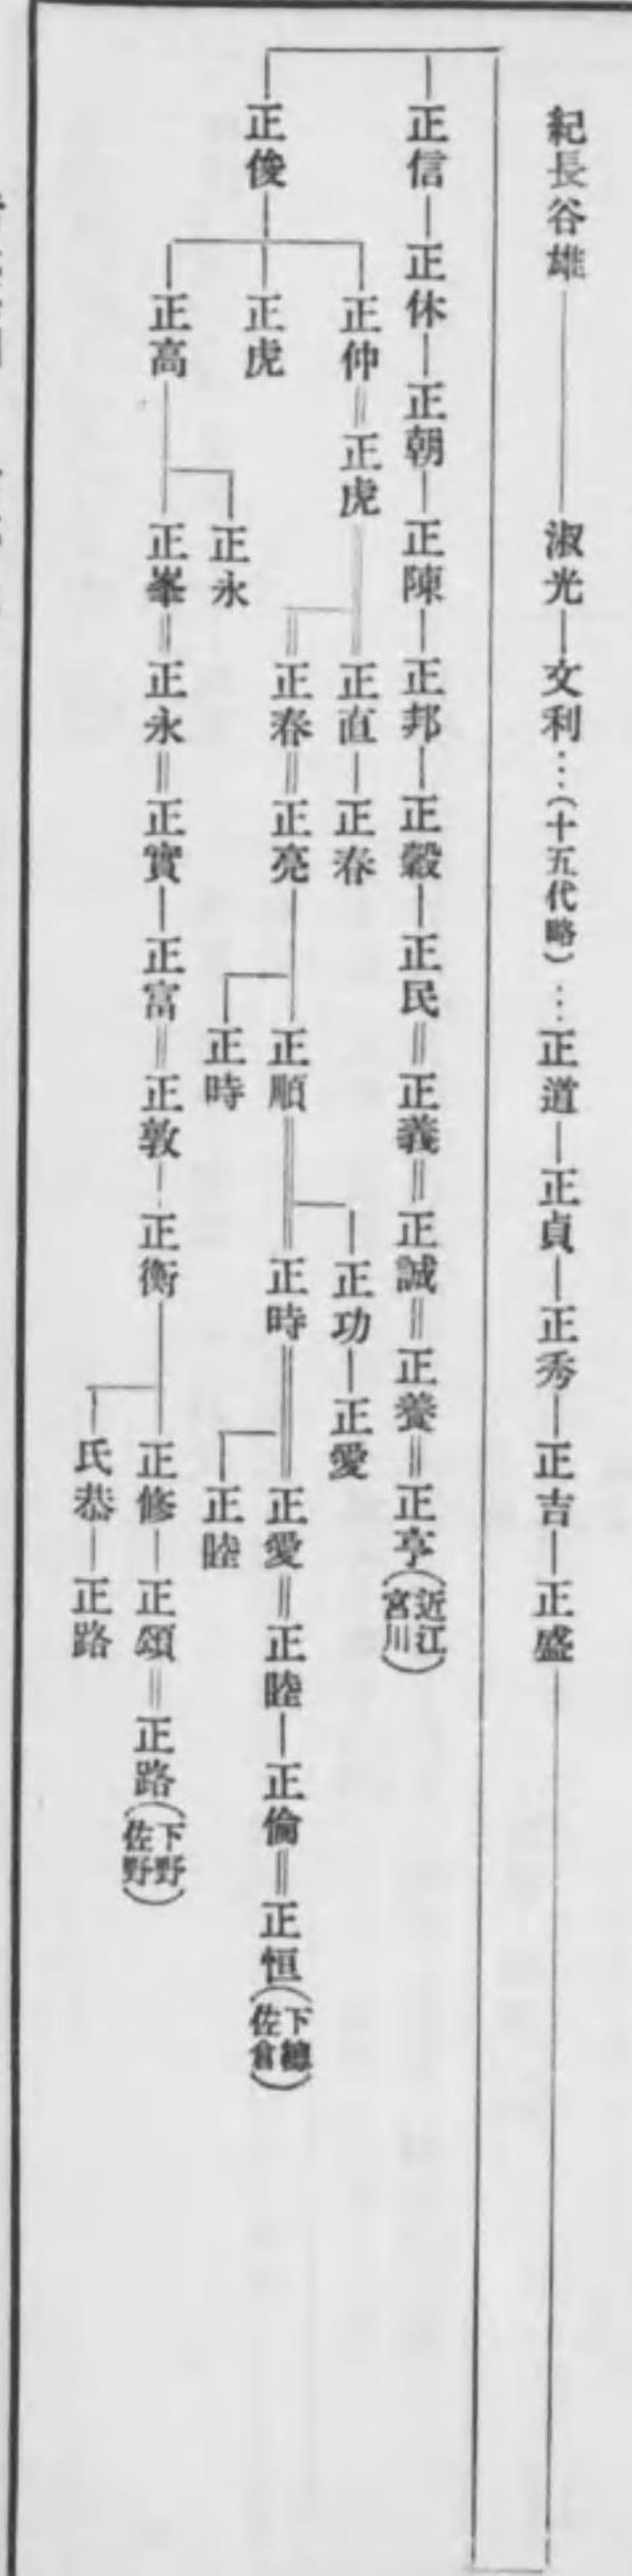 紀長谷雄―淑光―文利…(十五代略)…正道―正貞―正秀―正吉―正盛
正信―正休―正朝―正陳―正邦―正穀―正民＝正義＝正誠＝正養＝正亨(近江宮川)
正俊
正仲＝正虎
正直―正春
正春＝正亮
正順
正功―正愛
正時＝正愛＝正睦―正倫＝正恒(下總佐倉)
正睦
正時
正虎
正高
正永
正峯＝正永＝正實―正富＝正敦―正衡
正修―正頌＝正路(下野佐野)
氏恭―正路